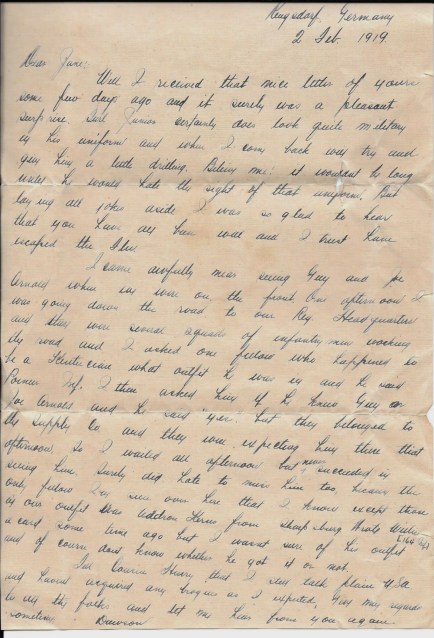 Germany
2 Feb 1919
Dear June:-
Well I recieved that nice letter of yours
some few days ago and it surely was a pleasant
surprise. Junior certainly does look quite military
in his uniform and when I come back will try and
give him a little drilling. Believe me! it wouldnt be long
until he would hate the sight of that uniform. But
laying all jokes aside I was so glad to hear
that you have all been well and I trust have
escaped the Flu.
I came awfully near seeing Guy and Joe
Arnold when we were on the front. One afternoon I
was going down the road to our Reg. Headquarters
and there were several squads of infantrymen working
the road and I asked one fellow who happened to
be a what outfit he was in and he said
Pioneer Inf. I then asked him if he knew Guy or
Joe Arnold and he said "yes" but they belonged to
the Supply Co. and they were expecting him there that
afternoon, so I waited all afternoon but never succeeded in
seeing him. Surely did hate to miss him too because the
only fellow Ive seen over here that I know except those
in our outfit was from
a card some time ago but I wasnt sure of his outfit
and of course dont know whether he got it or not.
Tell Cousin Henry that I still talk plain USA
and havent acquired any brogue as I expected. Give my regards
to all the folks and let me hear from you again
sometime Dawson